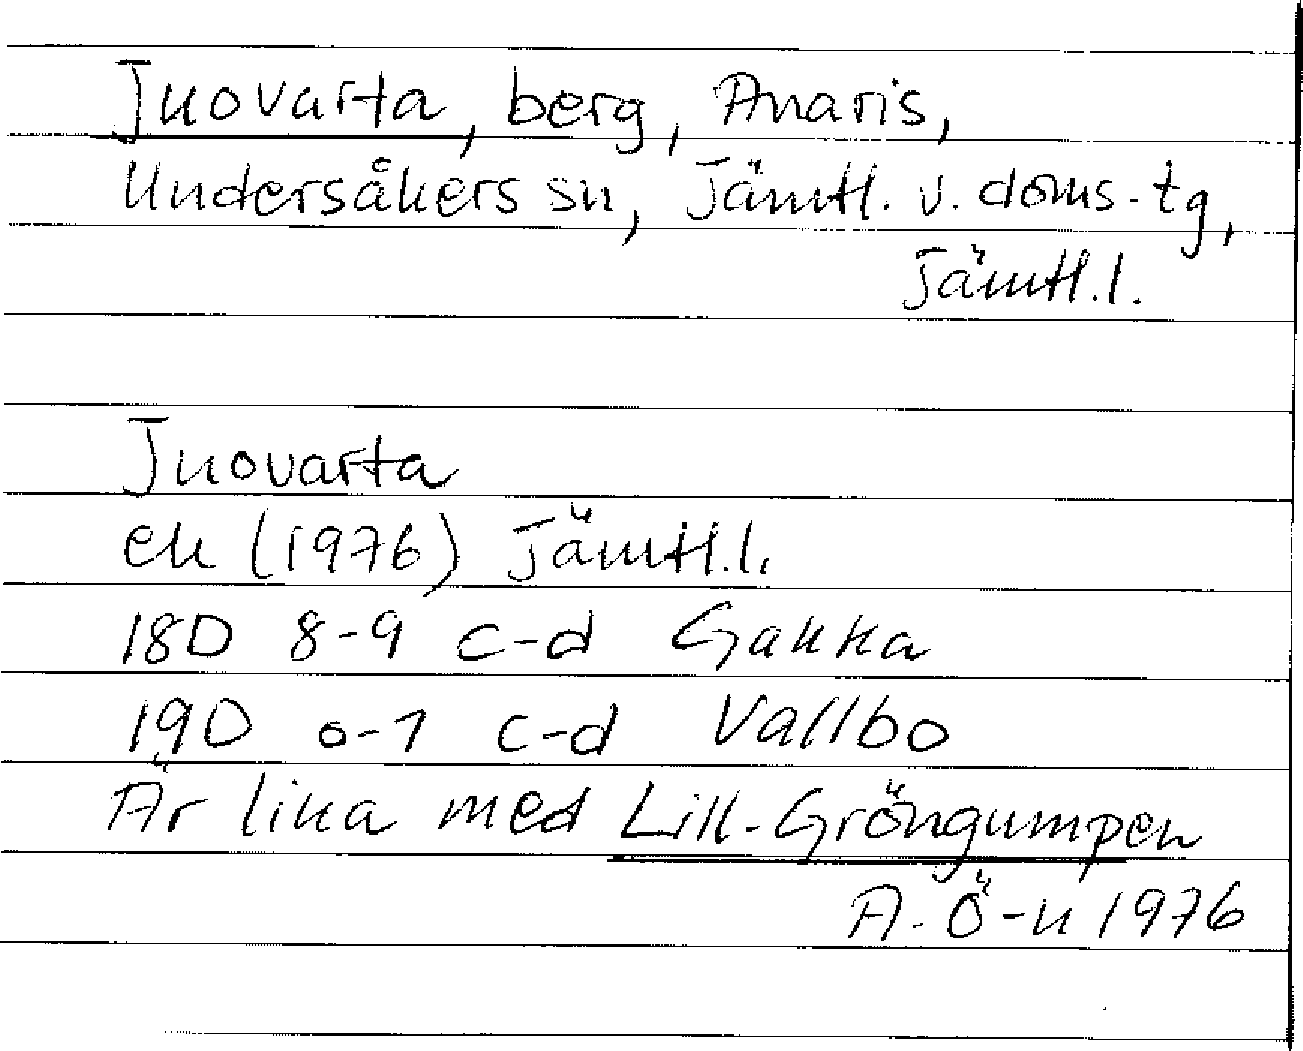 Juovarta, berg, Anaris,
Undersåkers sn, Jämtl. v. doms-tg,
Jämtl.l.
Juovarta
ek (1976) Jämtl.l.
18D 8-9 c-d Gakka
19D 0-1 c-d Vallbo
Är lika med Lill-Gröngumpen
A. Ö-n 1976